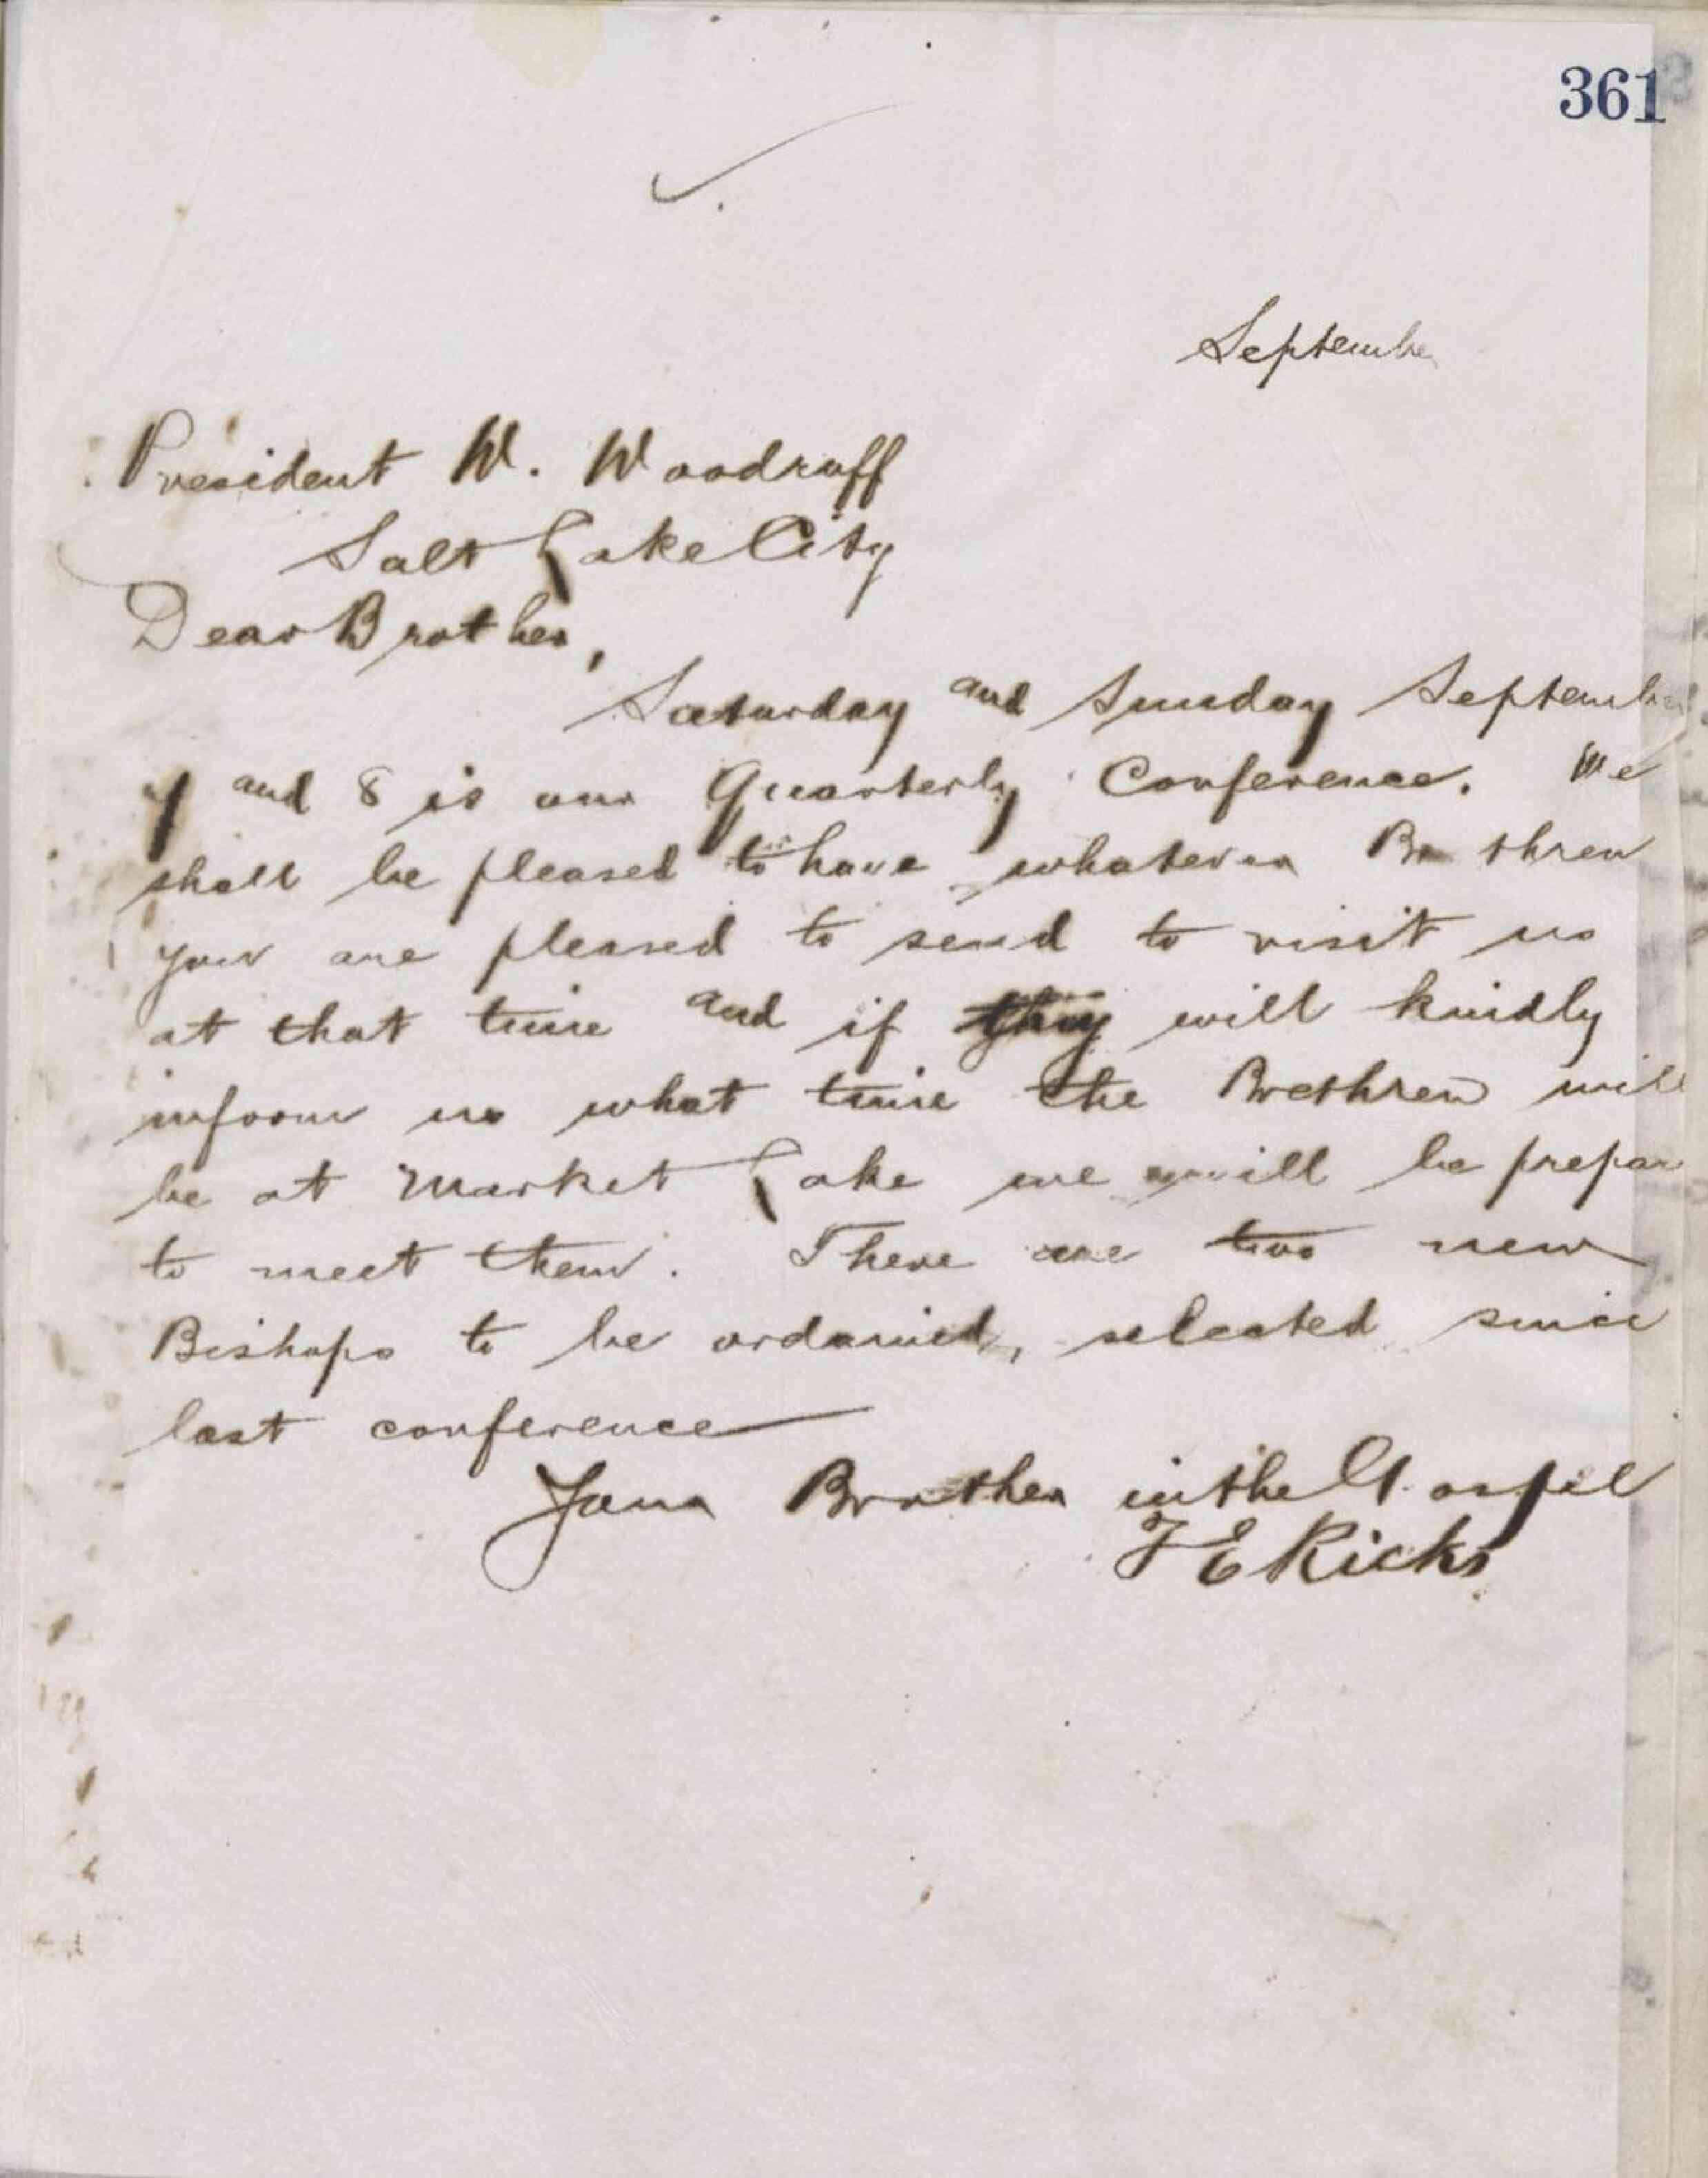 361
September
President W. Woodruff
Salt Lake City
Dear Brother,
Saturday and Sunday September
7 and 8 is our Quarterly Conference. We
shall be pleased to have whatever Brethren
you are pleased to send to visit us
at that time and if they will kindly
inform us what time the Brethren will
be at Market Lake we will be prepar
to meet them. There are two new
Bishops to be ordained, selected since
last conference
Your Brother in the Gospel
T E Ricks